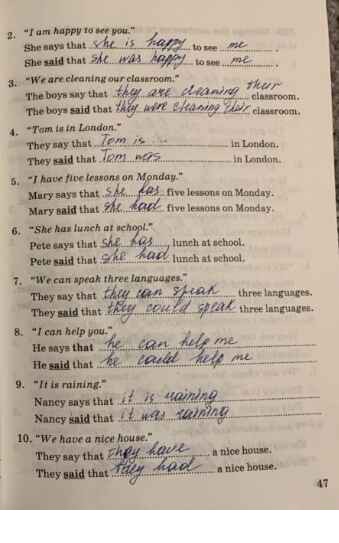 2. "I am happy to see you."
She says that she is happy to see me.
She said that she was happy to see me.
3. "We are cleaning our classroom."
The boys say that they are cleaning their classroom.
The boys said that they were cleaning their classroom.
4. "Tom is in London."
They say that Tom is in London.
They said that Tom was in London.
5. "I have five lessons on Monday."
Mary says that she has five lessons on Monday.
Mary said that she had five lessons on Monday.
6. "She has lunch at school."
Pete says that she has lunch at school.
Pete said that she had lunch at school.
7. "We can speak three languages."
They say that they can speak three languages.
They said that they could speak three languages.
8. "I can help you."
He says that he can help me
He said that he could help me
9. "It is raining."
Nancy says that it is raining
Nancy said that it was raining
10. "We have a nice house."
They say that They have a nice house.
They said that They had a nice house.
47